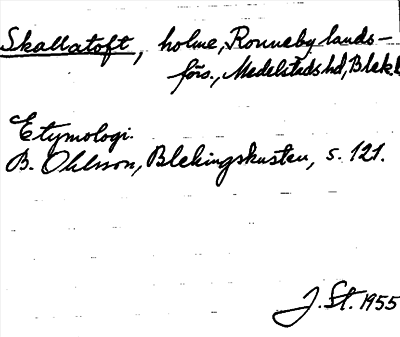 Skallatoft, holme, Ronneby lands-
förs., Medelstads hd, Blek.
Etymologi.
B. Ohlsson, Blekingskusten, s. 121.
J. St. 1955